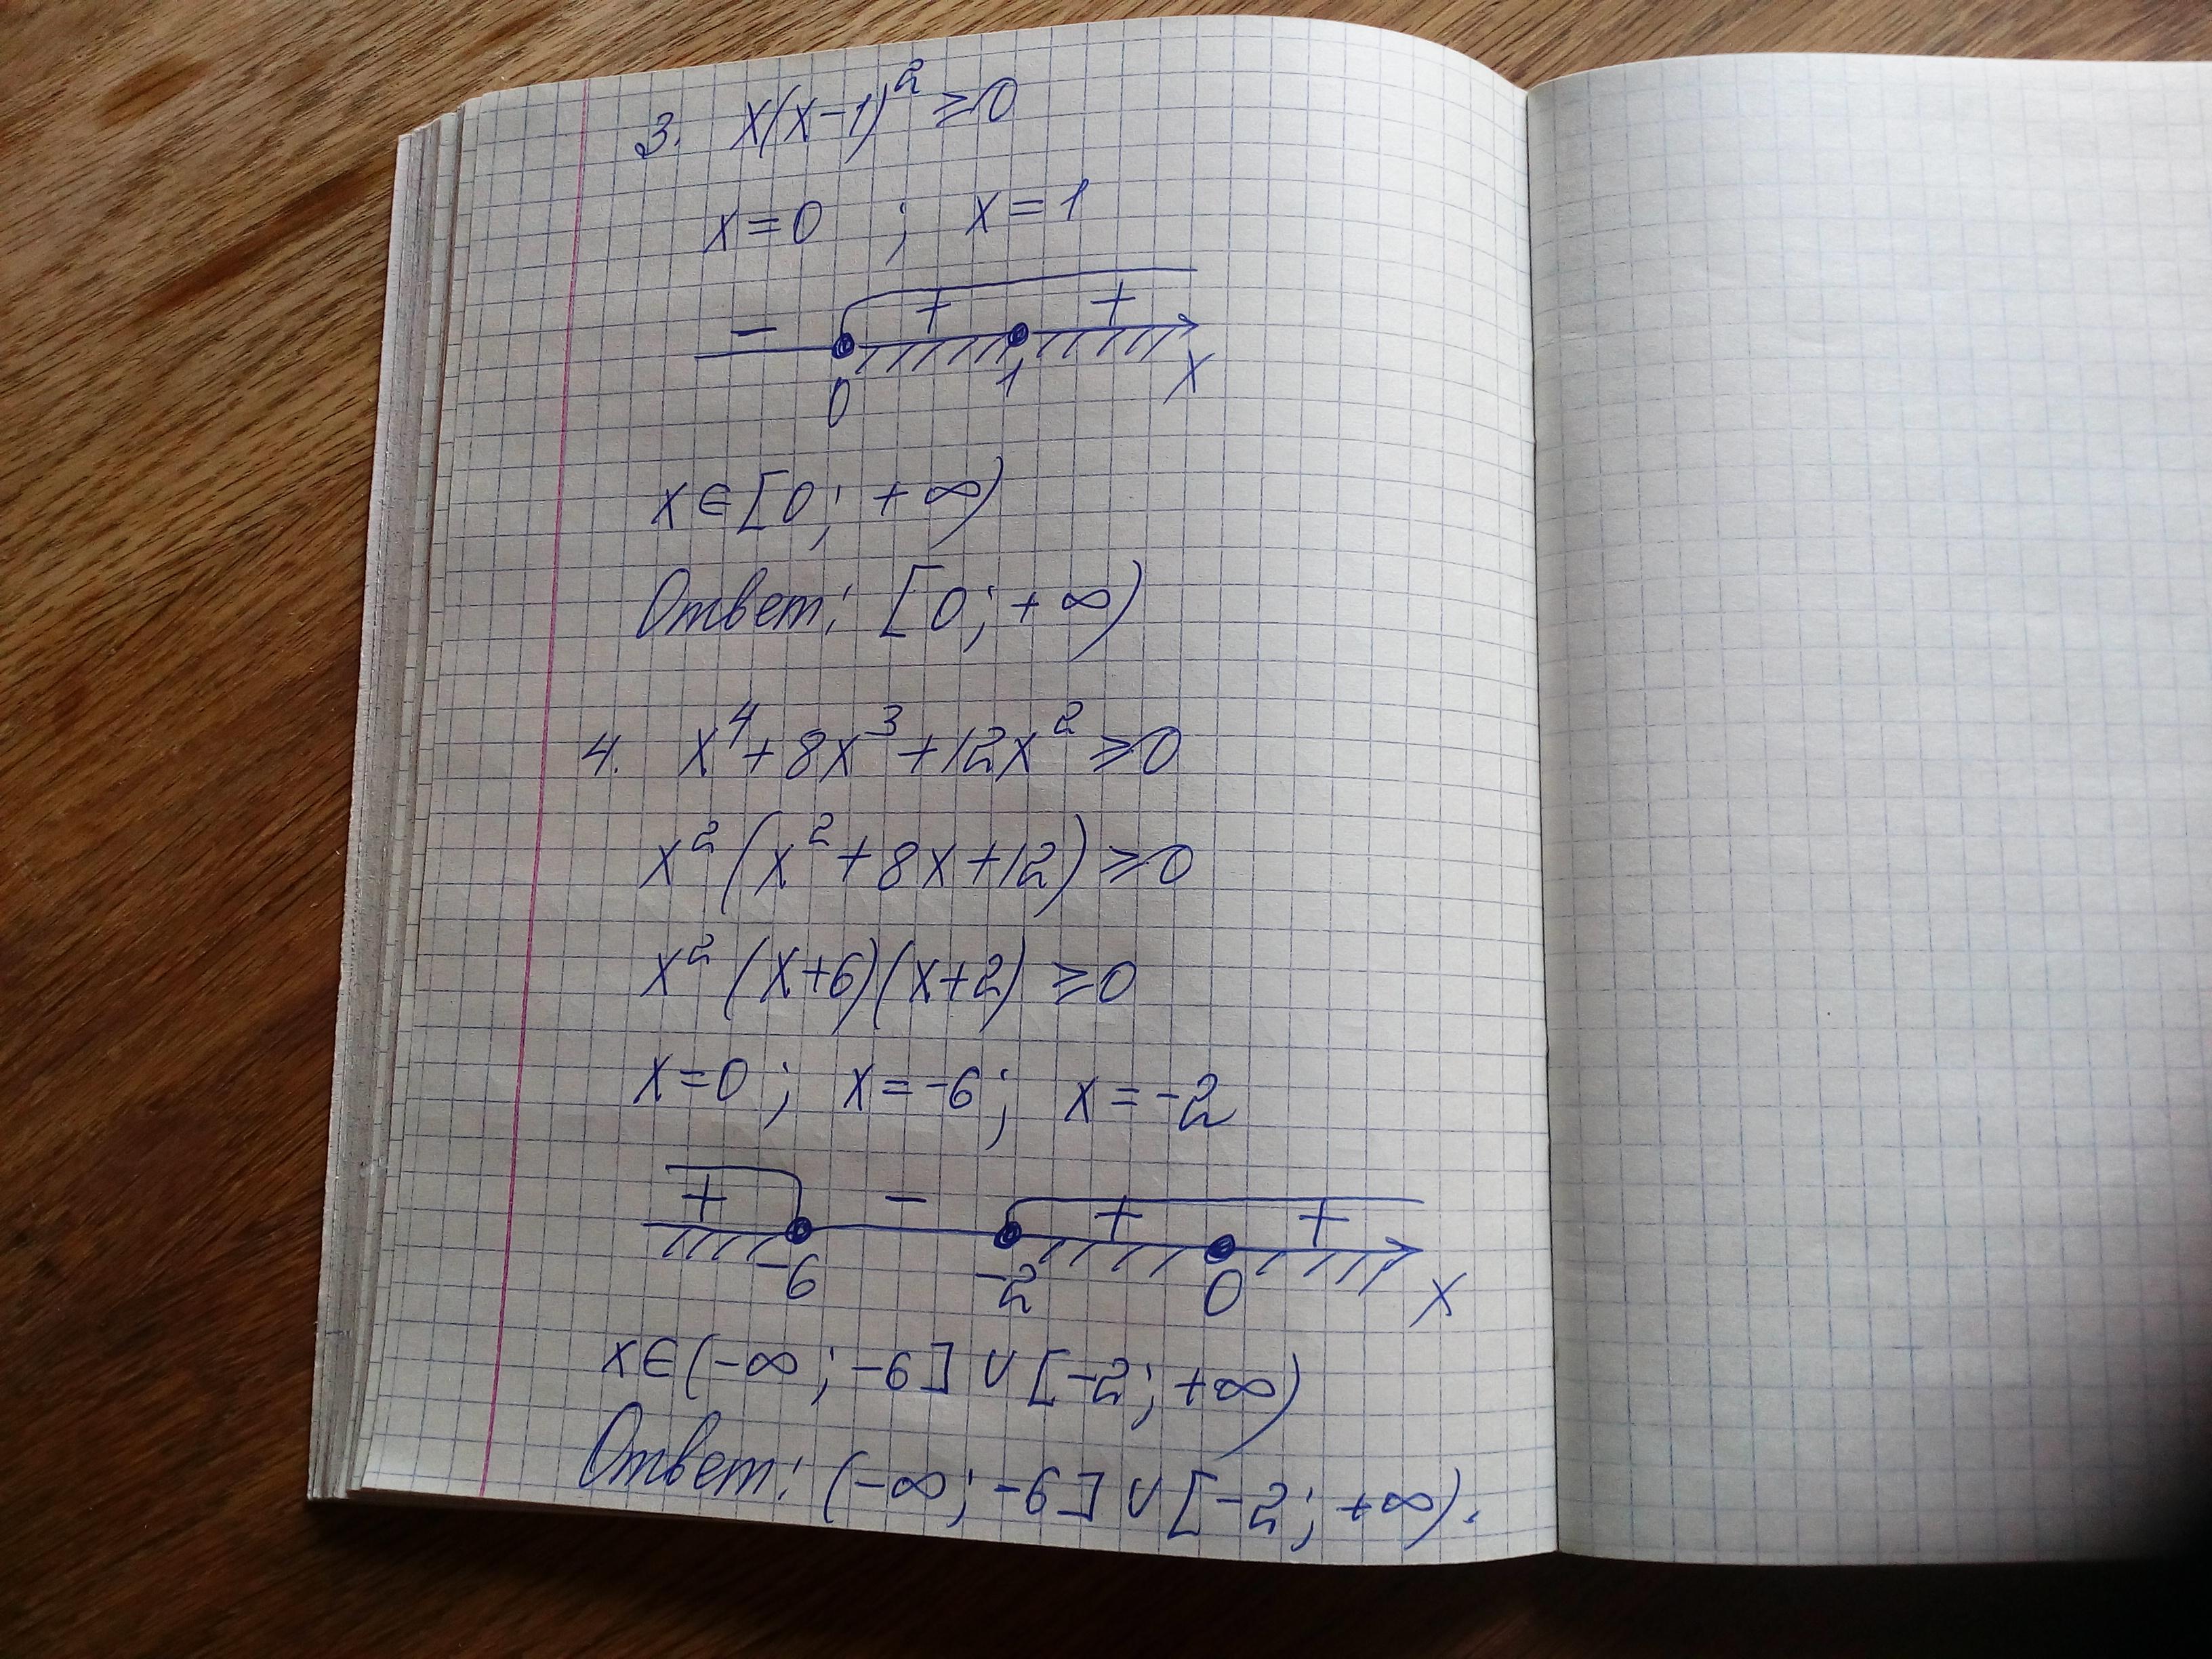 3. x(x-1)² ≥0
x=0 ; x=1
- + +
0 1 x
x∈[0; +∞)
Ответ: [0; +∞)
4. x⁴+8x³+12x² ≥0
x²(x²+8x+12)≥0
x²(x+6)(x+2)≥0
x=0; x=-6; x=-2
+ - + +
-6 -2 0 x
x∈(-∞; -6]∪[-2; +∞)
Ответ: (-∞; -6]∪[-2; +∞).